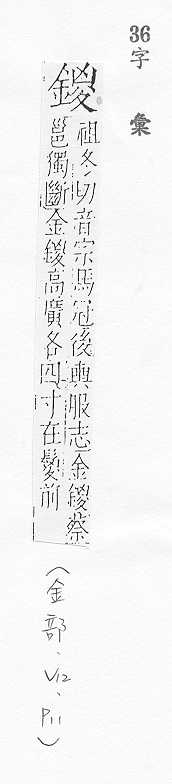 36
字彙
鍐
祖冬切音宗馬冠後輿服志金鍐蔡
邕獨斷金鍐高廣各四寸在髦前
(金部、V12、P11)